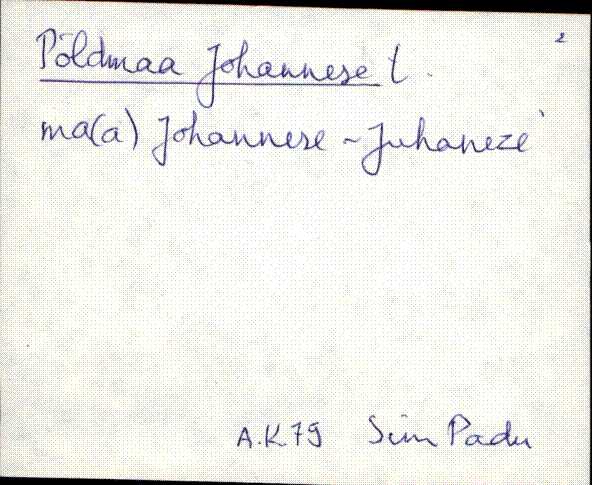 2
Põldmaa Johannese t.
ma(a) Johannese ~ Juhaneze`
A.K 79 Sim Padu